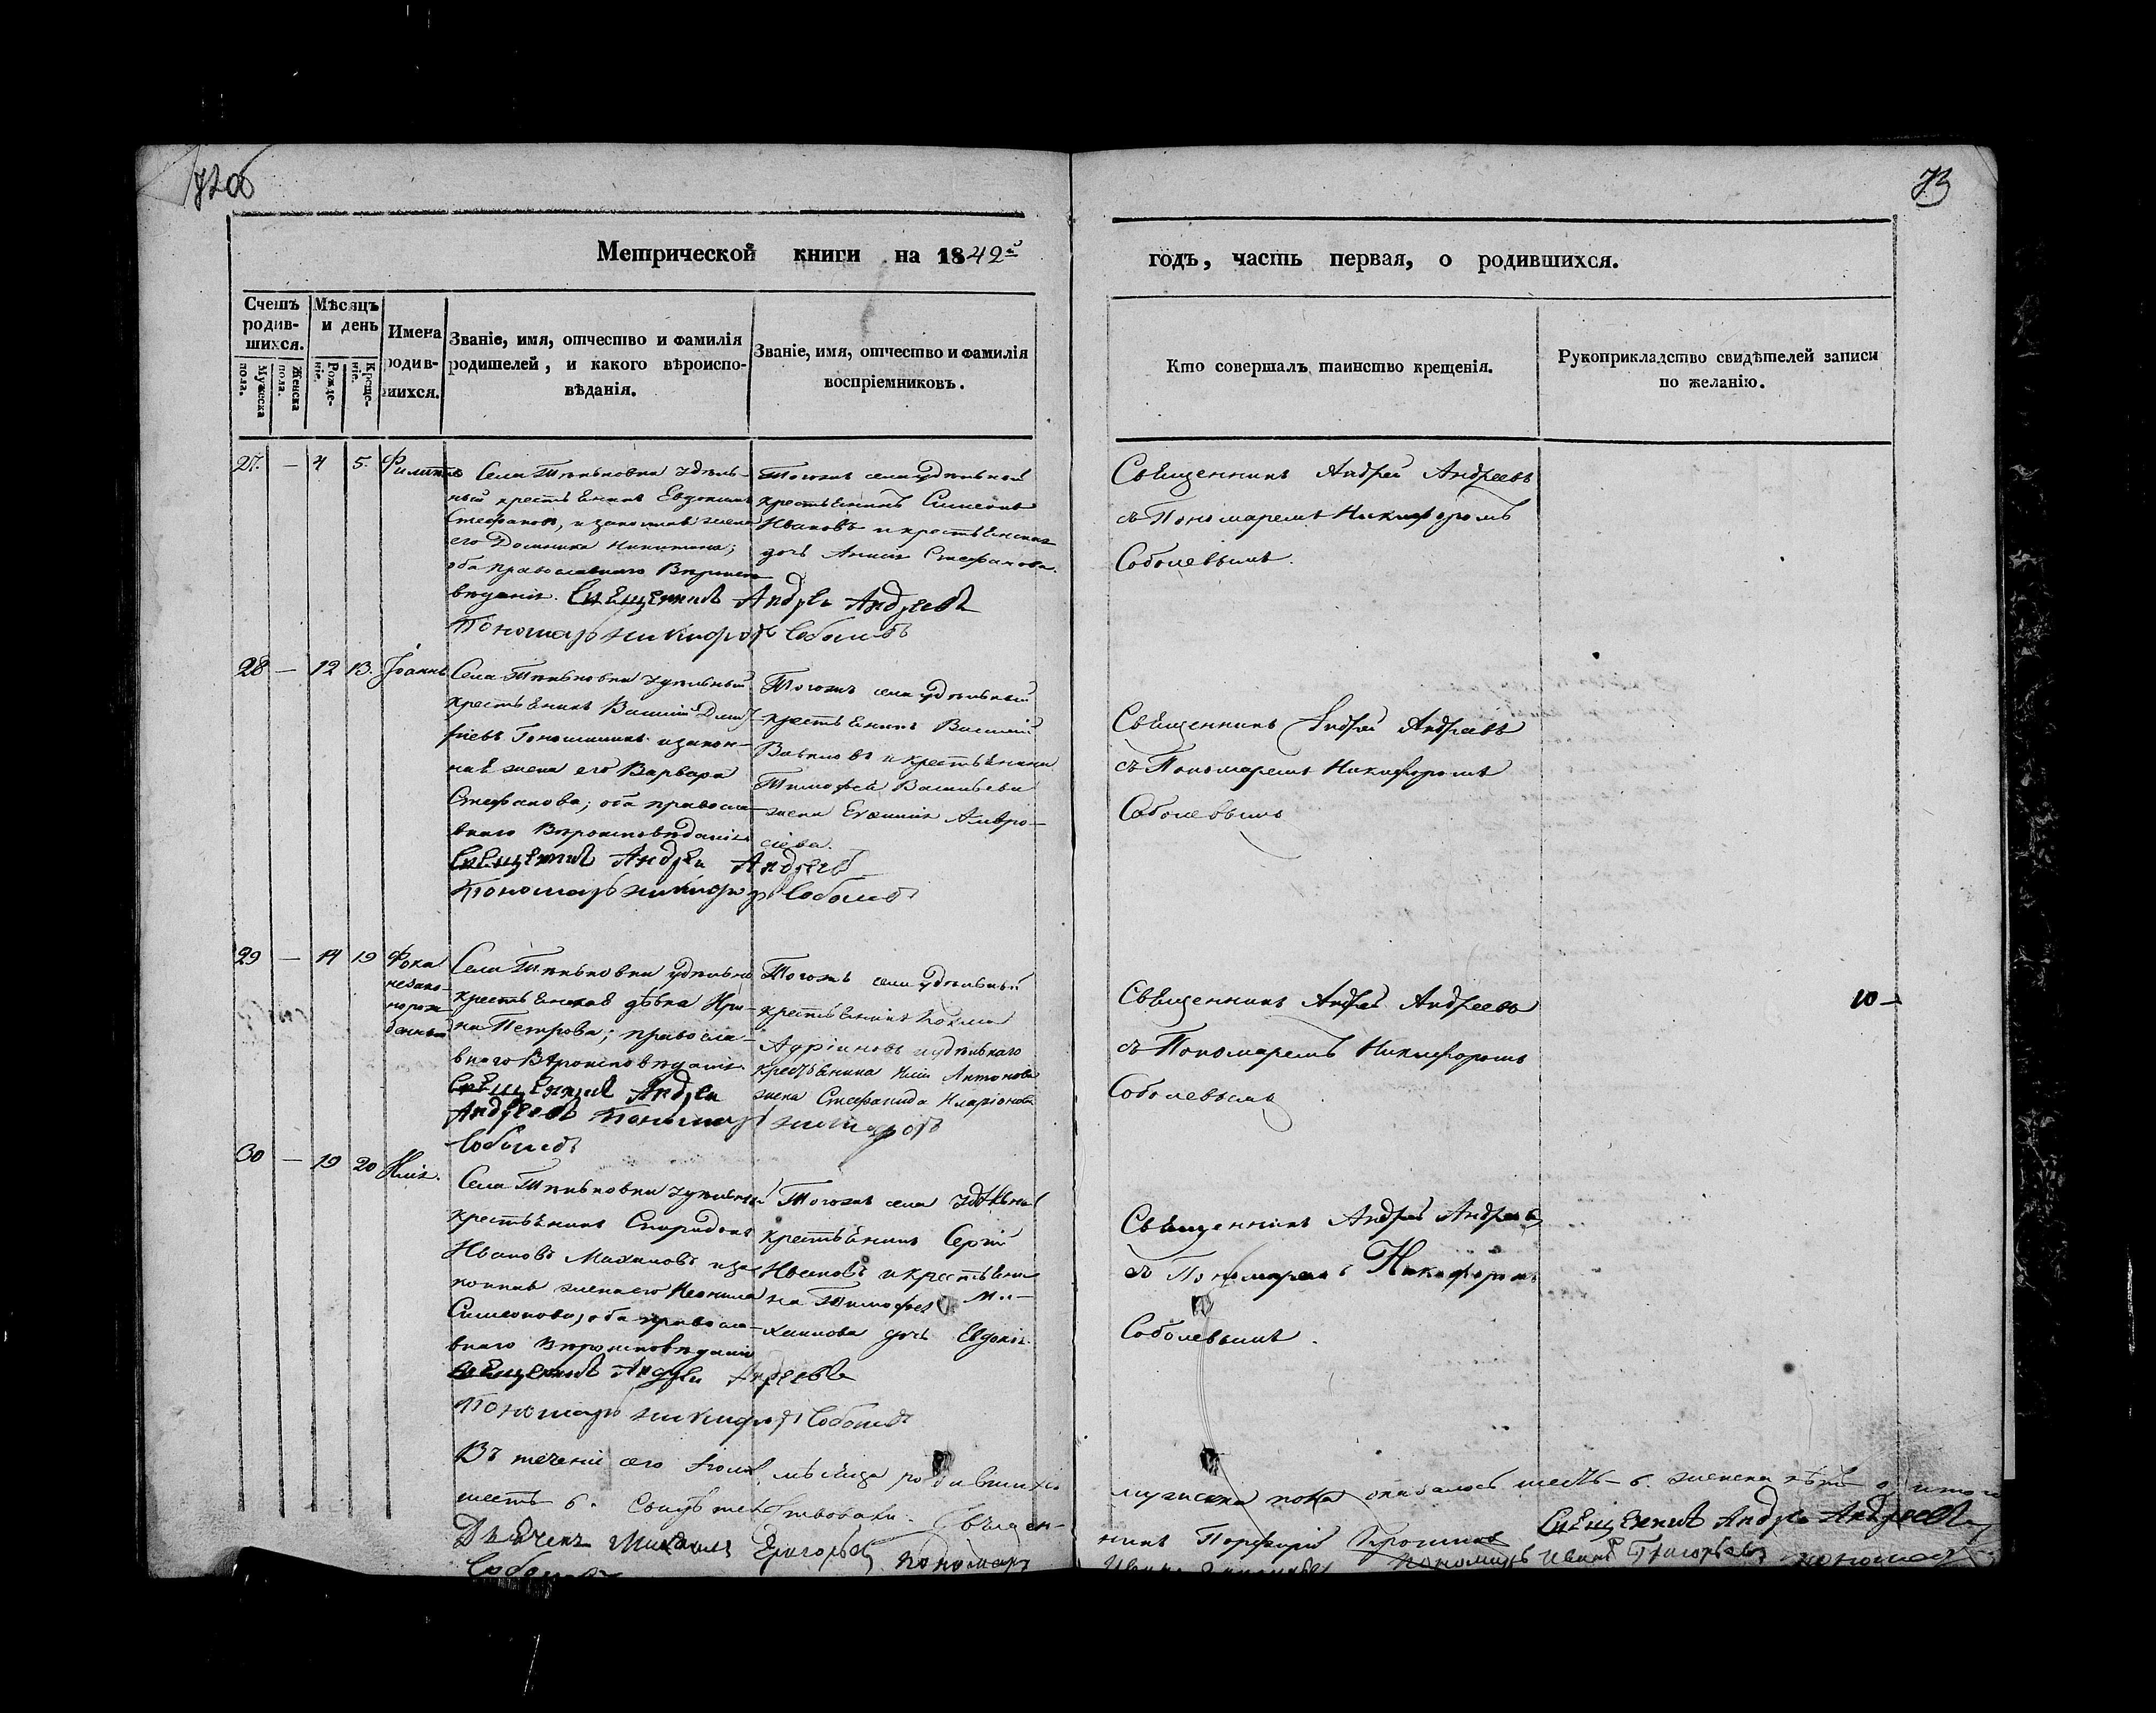 72об
73
Метрической книги на 1842й
годъ, часть первая, о родившихся.
Счетъ родив-
шихся.
Мужеска пола.
Женска пола.
Мѣсяцъ и день
Рожде-
ніе.
Креще-
ніе.
Имена
родив-
шихся.
Званіе, имя, отчество и фамилія
родителей, и какого вѣроиспо-
вѣданія.
Званіе, имя, отчество и фамилія
воспріемниковъ.
Кто совершалъ таинство крещенія.
Рукоприкладство свидѣтелей записи
по желанію.
27. — 4 5.
Села удѣль-
ный крестьянинъ Евдокимъ
Стефановъ, и законная жена
его Домника Никитина;
оба православнаго Вѣроиспо-
вѣданія. Священникъ Андрей Андреевъ
Пономарь Никифоръ Соболевъ
Тогожъ села удѣльной
крестьянинъ Симеонъ
Ивановъ и крестьянская
дочь Стефанова.
Священникъ Андрей Андреевъ
съ Пономаремъ Никифоромъ
Соболевымъ.
28 — 12 13. Іоаннъ
Села удѣльный
крестьянинъ Василій Дмит-
ріевъ и закон-
ная жена его Варвара
Стефанова; оба правосла-
внаго Вѣроисповѣданія.
Священникъ Андрей Андреевъ
Пономарь Никифоръ Соболевъ
Тогожъ села удѣльный
крестьянинъ Василій
и крестьянина
Тимофея Васильева
жена Амвро-
сіева.
Священникъ Андрей Андреевъ
съ Пономаремъ Никифоромъ
Соболевымъ
29 — 14 19 Фока
незако-
норож-
денный
Села удѣльная
крестьянская дѣвка Ири-
на Петрова; правосла-
внаго Вѣроисповѣданія.
Священникъ Андрей
Андреевъ Пономарь Никифоръ
Соболевъ
Тогожъ села удѣльный
крестьянинъ Козма
Адріановъ и удѣльнаго
крестьянина Иліи Антонова
жена Стефанида Иларіонова
Священникъ Андрей Андреевъ
съ Пономаремъ Никифоромъ
Соболевымъ
10 —
30 — 19 20 Илія.
Села удѣльный
крестьянинъ Спиридонъ
Ивановъ и за-
конная жена его Неонила
Симеонова; оба правосла-
внаго Вѣроисповѣданія
Священникъ Андрей Андреевъ
Пономарь Никифоръ Соболевъ
Тогожъ села удѣльный
крестьянинъ Сергій
Ивановъ и крестьяни-
на Тимофея Ми-
хаилова дочь Евдокія.
Священникъ Андрей Андреевъ
съ Пономаремъ Никифоромъ
Соболевымъ.
Въ теченіи сего Іюля мѣсяца родившихся
мужеска пола оказалось шесть — 6. женска нѣтъ 0, итого
шесть 6. Свидѣтельствовали. Священ-
никъ Порфирій Священникъ Андрей Андреевъ
Дьячекъ Михаилъ Григорьевъ Пономарь
Пономарь Иванъ Григорьевъ пономарь